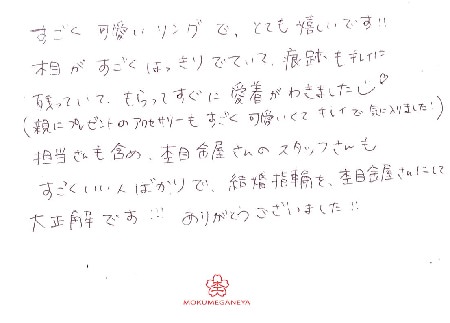 すごく可愛いリングで、とても嬉しいです!!
木目がすごくはっきりでていて、痕跡もキレイに
残っていて、もらってすぐに愛着がわきました
(親にプレゼントのアクセサリーもすごく可愛いくてキレイで気に入りました!)
担当さんも含め、杢目金屋さんのスタッフさんも
すごくいい人ばかりで、結婚指輪を、杢目金屋さんにして
大正解です!!! ありがとうございました!!
MOKUMEGANEYA